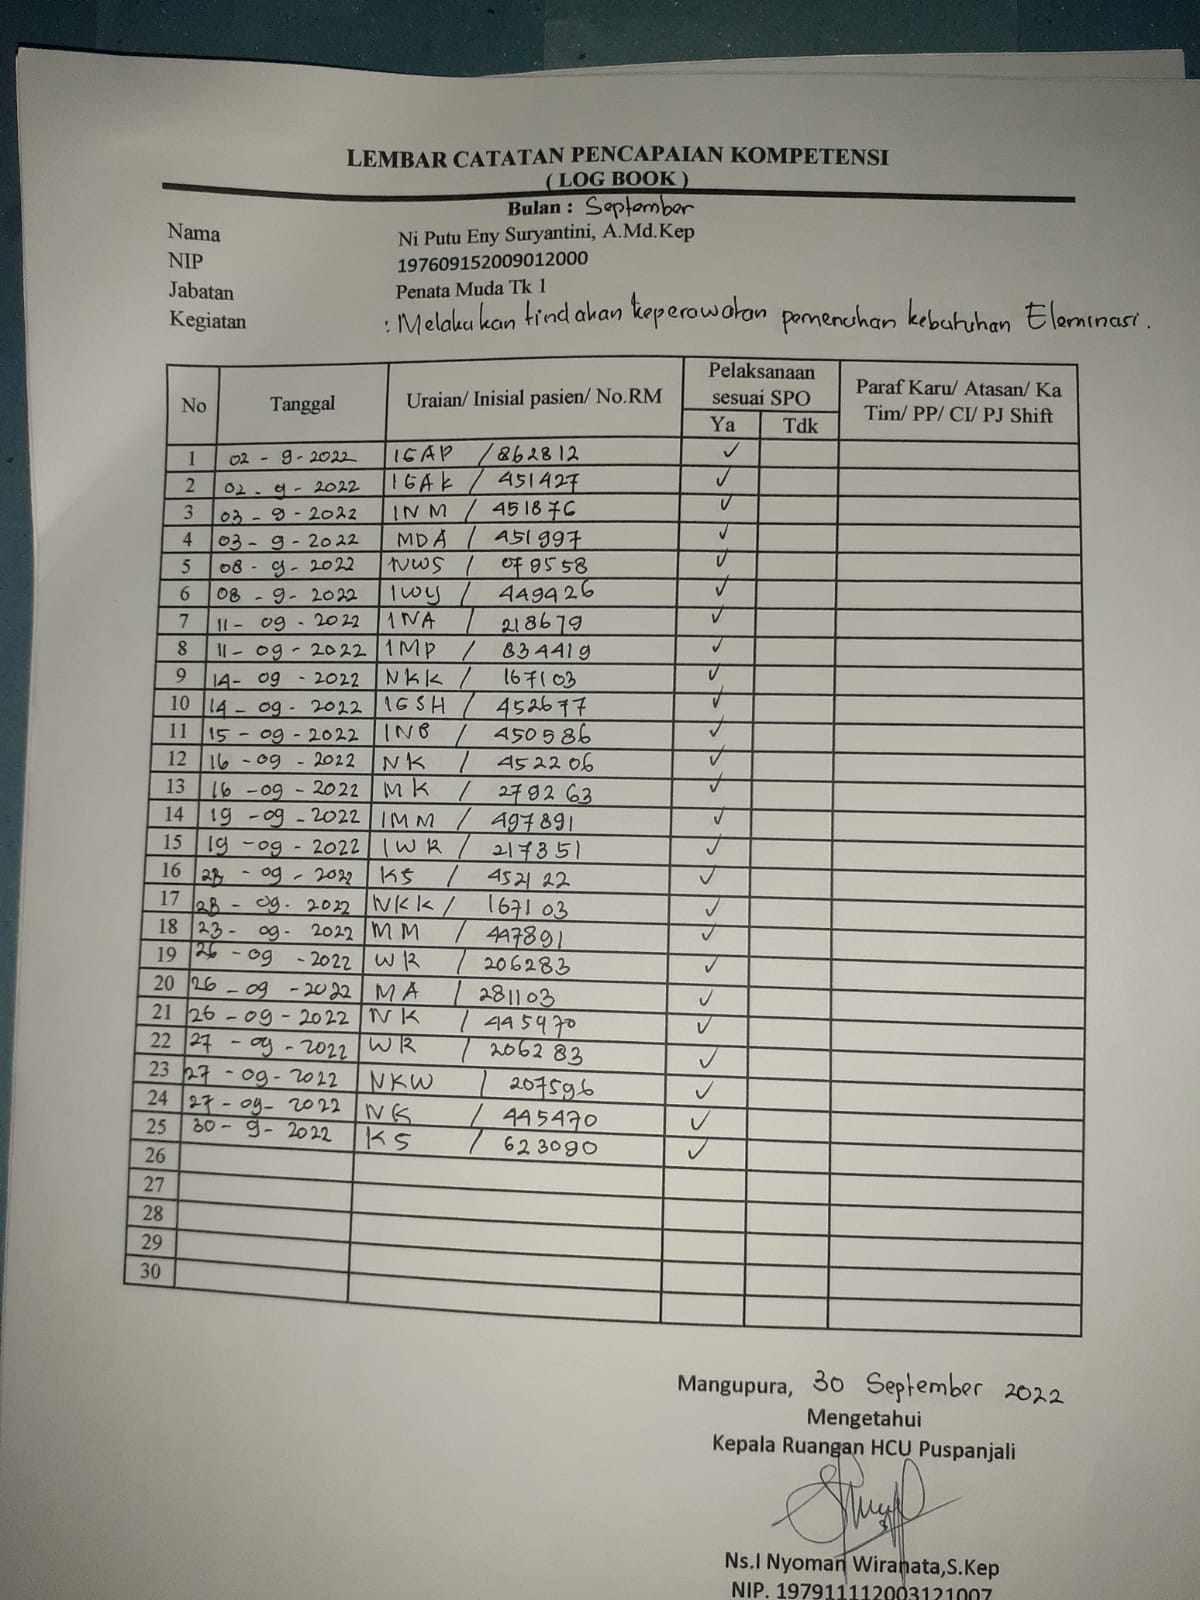 LEMBAR CATATAN PENCAPAIAN KOMPETENSI
( LOG BOOK )
Bulan : September
Nama Ni Putu Eny Suryantini, A.Md.Kep
NIP 197609152009012000
Jabatan Penata Muda Tk 1
Kegiatan : Melakukan tindakan keperawatan pemenuhan kebutuhan Eleminasi.
No Tanggal Uraian/ Inisial pasien/ No.RM Pelaksanaan sesuai SPO Paraf Karu/ Atasan/ Ka Tim/ PP/ CI/ PJ Shift
Ya Tdk
1 02 - 9 - 2022 IGAP / 862812 ✓
2 02 - 9 - 2022 IGAK / 451427 ✓
3 03 - 9 - 2022 INM / 451876 ✓
4 03 - 9 - 2022 MDA / 451997 ✓
5 08 - 9 - 2022 NWS / 079558 ✓
6 08 - 9 - 2022 IWY / 449426 ✓
7 11 - 09 - 2022 INA / 218679 ✓
8 11 - 09 - 2022 IMP / 834419 ✓
9 14 - 09 - 2022 NKK / 167103 ✓
10 14 - 09 - 2022 IGSH / 452677 ✓
11 15 - 09 - 2022 INB / 450586 ✓
12 16 - 09 - 2022 NK / 452206 ✓
13 16 - 09 - 2022 MK / 279263 ✓
14 19 - 09 - 2022 IMM / 497891 ✓
15 19 - 09 - 2022 IWR / 217351 ✓
16 - 09 - 2022 KS / 452122 ✓
17 - 09 - 2022 NKK / 167103 ✓
18 23 - 09 - 2022 MM / 447891 ✓
19 26 - 09 - 2022 WR / 206283 ✓
20 26 - 09 - 2022 MA / 281103 ✓
21 26 - 09 - 2022 NK / 445470 ✓
22 27 - 09 - 2022 WR / 206283 ✓
23 27 - 09 - 2022 NKW / 207596 ✓
24 27 - 09 - 2022 NK / 445470 ✓
25 30 - 9 - 2022 KS / 623090 ✓
26
27
28
29
30
Mangupura, 30 September 2022
Mengetahui
Kepala Ruangan HCU Puspanjali
Ns.I Nyoman Wiranata,S.Kep
NIP. 197911112003121007